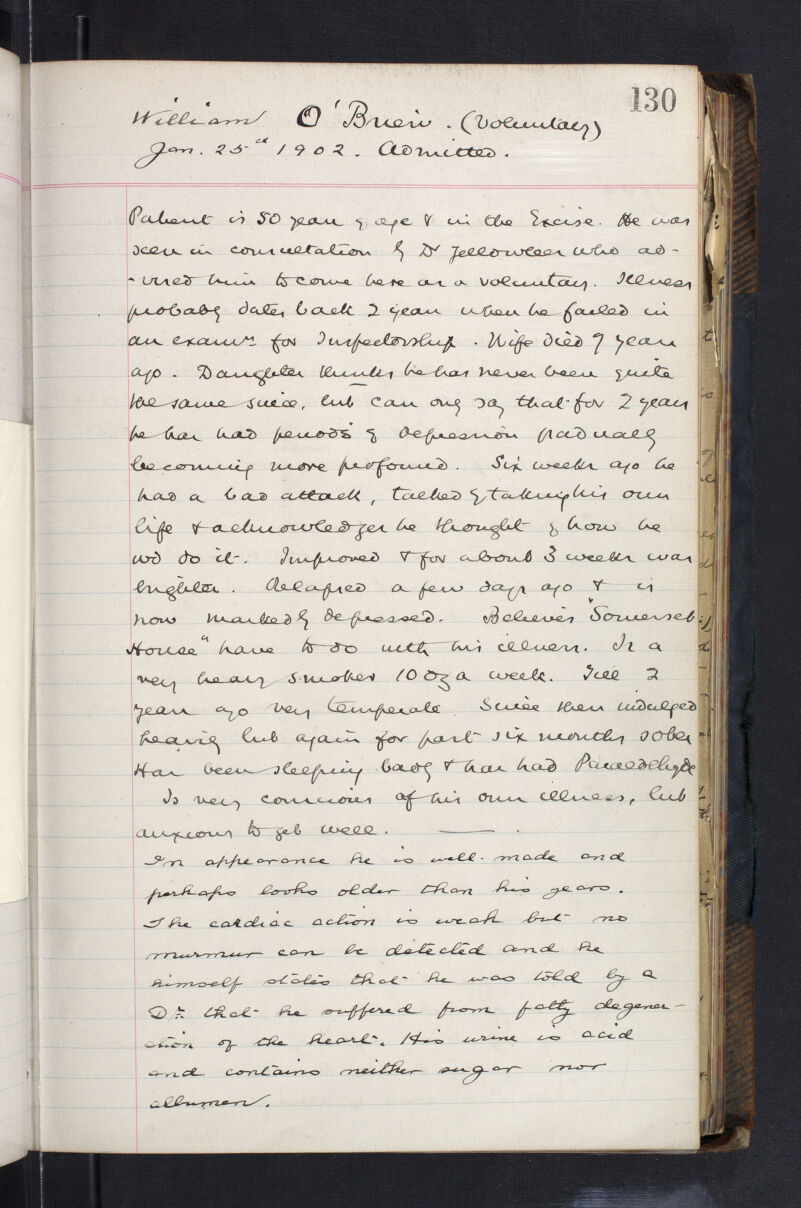 130
William O'Brien. (Voluntary)
Jan. 25th 1902. Admitted.
Patient is 50 years of age & in the Excise. He was
seen in consultation by Dr Yellowlees who ad-
-vised him to come here as a voluntary. Illness
probably dates back 2 years when he failed in
an examn for Inspectorship. Wife died 9 years
ago. Daughter thinks he has never been quite
the same since, but can only say that for 2 years
he has had periods of depression gradually
becoming more profound. Six weeks ago he
had a bad attack, talked of taking his own
life & acknowledges he thought of how he
wd do it. Improved & for about 3 weeks was
brighter. Relapsed a few days ago & is
now markedly depressed. Believes "Somerset
House" have to do with his illness. Is a
very heavy smoker 10 oz a week. Till 2
years ago very temperate. Since then indulged
heavily but again for past six months sober
Has been sleeping badly & has had Paraldehyde
Is very conscious of his own illness, but
anxious to get well. ——— .
In appearance he is well-made and
perhaps looks older than his years.
The cardiac action is weak but no
murmur can be detected and he
himself states that he was told by a
Dr. that he suffered from fatty degener-
ation of the heart. His urine is acid
and contains neither sugar nor
albumen.